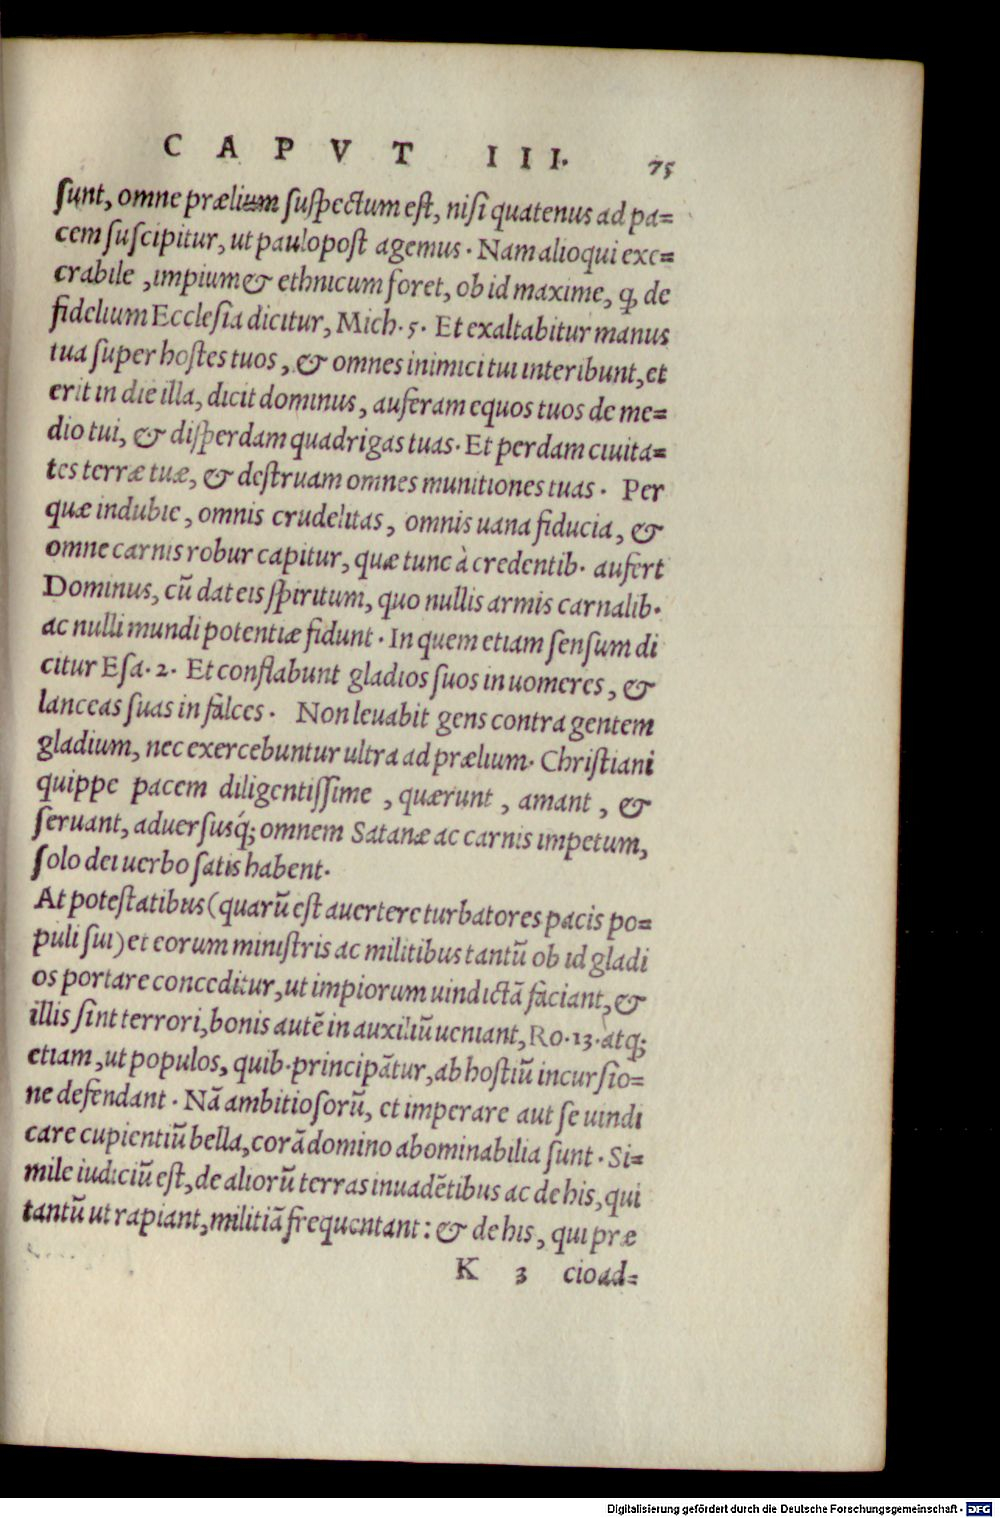 CAPVT III. 75
sunt, omne prælium suspectum est, nisi quatenus ad pa=
cem suscipitur, ut paulopost agemus. Nam alioqui exe=
crabile, impium & ethnicum foret, ob id maxime, q̨ de
fidelium Ecclesia dicitur, Mich. 5. Et exaltabitur manus
tua super hostes tuos, & omnes inimici tui interibunt, et
erit in die illa, dicit dominus, auferam equos tuos de me=
dio tui, & disperdam quadrigas tuas. Et perdam ciuita=
tes terræ tuæ, & destruam omnes munitiones tuas. Per
quæ indubie, omnis crudelitas, omnis uana fiducia, &
omne carnis robur capitur, quæ tunc à credentib. aufert
Dominus, cū dat eis spiritum, quo nullis armis carnalib.
ac nulli mundi potentiæ fidunt. In quem etiam sensum di
citur Esa. 2. Et conflabunt gladios suos in uomeres, &
lanceas suas in falces. Non leuabit gens contra gentem
gladium, nec exercebuntur ultra ad prælium. Christiani
quippe pacem diligentissime, quærunt, amant, &
seruant, aduersusq́; omnem Satanæ ac carnis impetum,
solo dei uerbo satis habent.
At potestatibus (quarū est auertere turbatores pacis po=
puli sui) et eorum ministris ac militibus tantū ob id gladi
os portare conceditur, ut impiorum uindictā faciant, &
illis sint terrori, bonis autē in auxiliū ueniant, Ro. 13. atq;
etiam, ut populos, quib. principātur, ab hostiū incursio=
ne defendant. Nā ambitiosorū, et imperare aut se uindi
care cupientiū bella, corā domino abominabilia sunt. Si=
mile iudiciū est, de aliorū terras inuadētibus ac de his, qui
tantū ut rapiant, militiā frequentant: & de his, qui præ
K 3 cio ad=
Digitalisierung gefördert durch die Deutsche Forschungsgemeinschaft - DFG